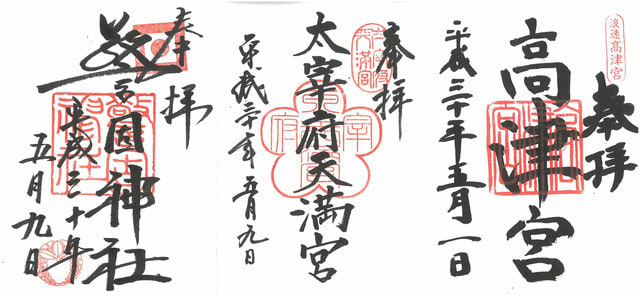 浪速高津宮
奉拝
高津宮
平成三十年五月一日
奉拝
太宰府天満宮
平成三十年五月九日
奉拝
警固神社
平成三十年
五月九日